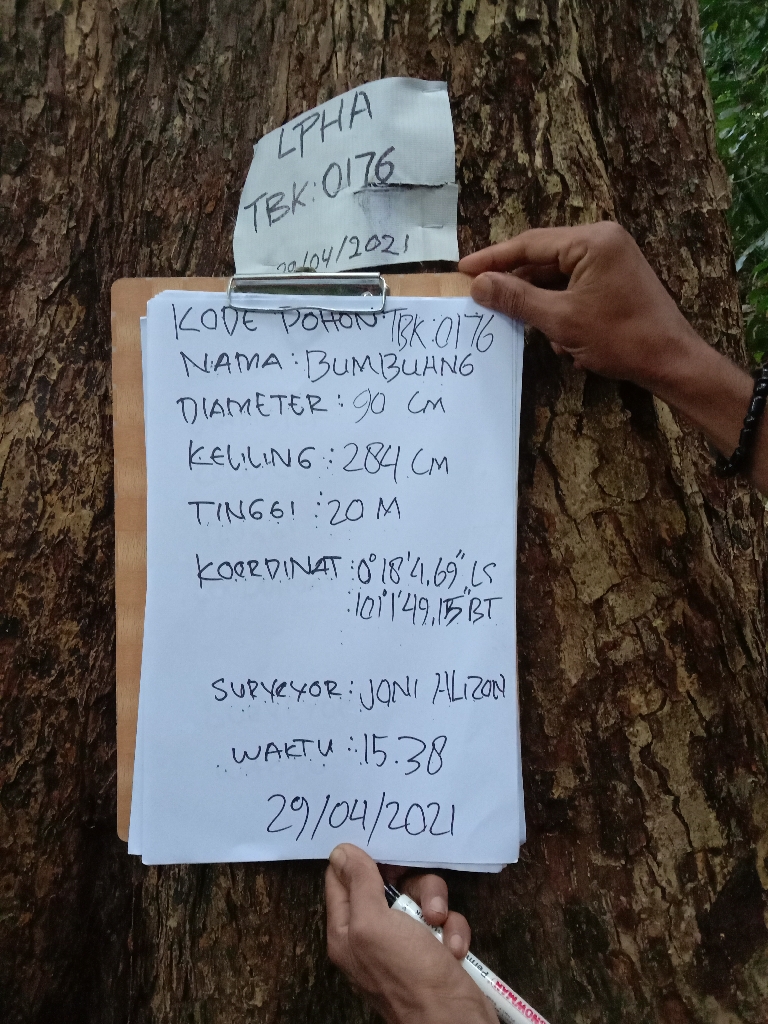 LPHA
TBK:0176
29/04/2021
KODE POHON:TBK:0176
NAMA:BUMBUANG
DIAMETER:90 CM
KELILING:284 CM
TINGGI:20 M
KOORDINAT:0°18'4,69" LS
:101°1'49,15"BT
SURVEYOR:JONI ALIZON
WAKTU:15.38
29/04/2021
SNOWMAN